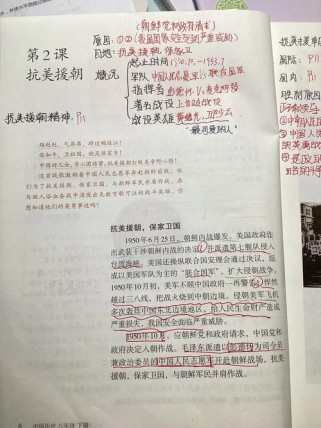 (朝鲜党和政府请求)
原因:①②(我国国家安全受到严重威胁)
目地:抗美援朝,保家卫
第 2 课
抗美援朝
概况
起止时间:1950.10-1953.7
军队:中国人民志愿军 vs 联合国军
指挥者:彭德怀 vs
著名战役:上甘岭战役
战斗英雄:黄继光、邱少云
"最可爱的人"
抗美援朝精神:P11
雄赳赳,气昂昂,跨过鸭绿江!
保和平,卫祖国,就是保家乡!
中国好儿女,齐心团结紧,抗美援朝打败美帝野心狼!
这首战歌激励着中国人民志愿军奔赴朝鲜前线。他
们为了抗美援朝、保家卫国,与朝鲜军民并肩作战,在
与敌人浴血奋战中涌现出无数可歌可泣的战斗英雄。你
想知道他们的英勇事迹吗?
抗美援朝,保家卫国
1950年6月25日,朝鲜内战爆发。美国政府作
出武装干涉朝鲜内战的决定,①并派遣第七舰队侵入
台湾海峡。美国还操纵联合国安理会通过决议,组
成以美国军队为主的“联合国军”,扩大侵朝战争。
1950年10月初,美军不顾中国政府一再警告,②悍然
越过三八线,把战火烧到中朝边境。侵朝美军飞机
多次轰炸中国东北边境地区,给人民生命财产造成
严重损失,我国安全面临严重威胁。
1950年10月,应朝鲜党和政府请求,中国党和
政府决定入朝作战。毛泽东派遣以彭德怀为司令员
兼政治委员的中国人民志愿军开赴朝鲜战场,抗美
援朝,保家卫国,与朝鲜军民并肩作战。
中国历史 八年级 下册